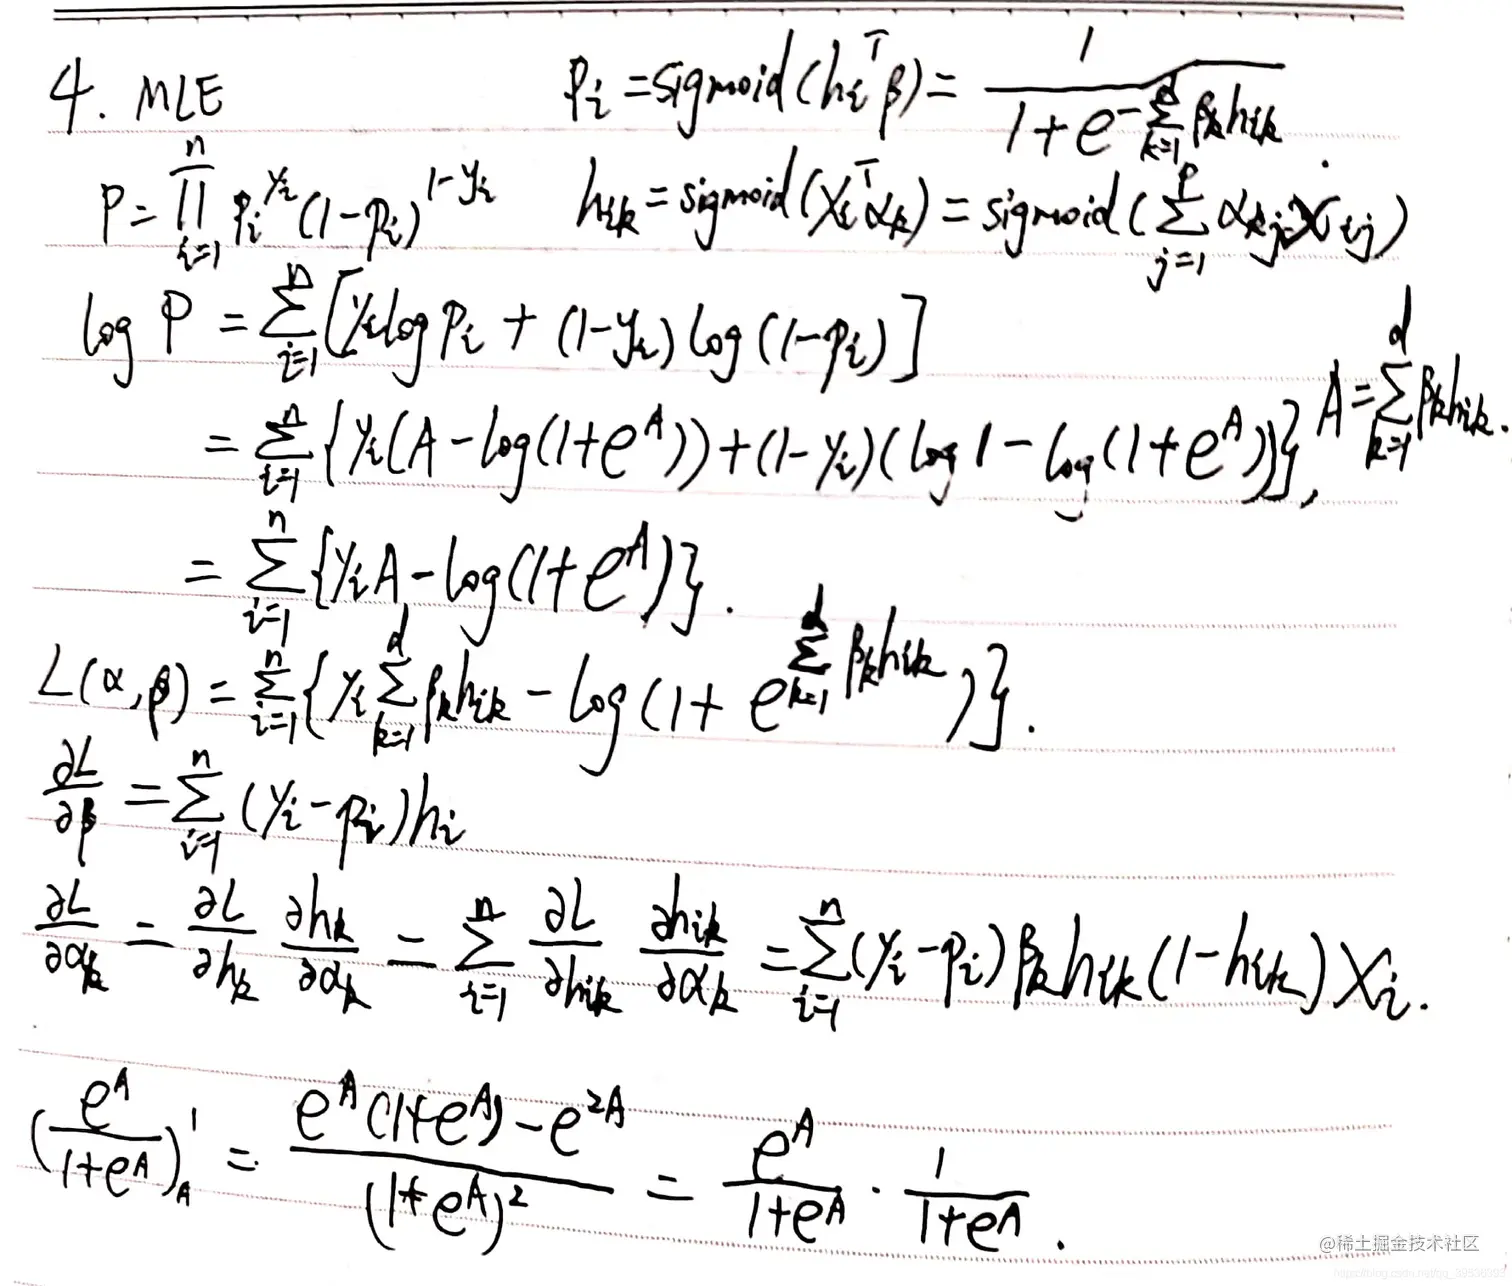 4. MLE
p_i = sigmoid(h_i^T β) = 1 / (1 + e^{-∑_{k=1}^{d} β_k h_{ik}}).
P = ∏_{i=1}^{n} p_i^{y_i} (1-p_i)^{1-y_i}
h_{ik} = sigmoid(X_i^T α_k) = sigmoid(∑_{j=1}^{p} α_{kj} X_{ij})
log P = ∑_{i=1}^{n} [y_i log p_i + (1-y_i) log (1-p_i)]
= ∑_{i=1}^{n} {y_i (A - log(1+e^A)) + (1-y_i)(log 1 - log(1+e^A))}, A = ∑_{k=1}^{d} β_k h_{ik}.
= ∑_{i=1}^{n} {y_i A - log(1+e^A)}.
L(α,β) = ∑_{i=1}^{n} {y_i ∑_{k=1}^{d} β_k h_{ik} - log(1 + e^{∑_{k=1}^{d} β_k h_{ik}})}.
∂L/∂β = ∑_{i=1}^{n} (y_i - p_i) h_i
∂L/∂α_k = ∂L/∂h_k ∂h_k/∂α_k = ∑_{i=1}^{n} ∂L/∂h_{ik} ∂h_{ik}/∂α_k = ∑_{i=1}^{n} (y_i - p_i) β_k h_{ik} (1-h_{ik}) X_i.
(e^A / (1+e^A))'_A = (e^A (1+e^A) - e^{2A}) / (1+e^A)^2 = e^A / (1+e^A) · 1 / (1+e^A).
@稀土掘金技术社区